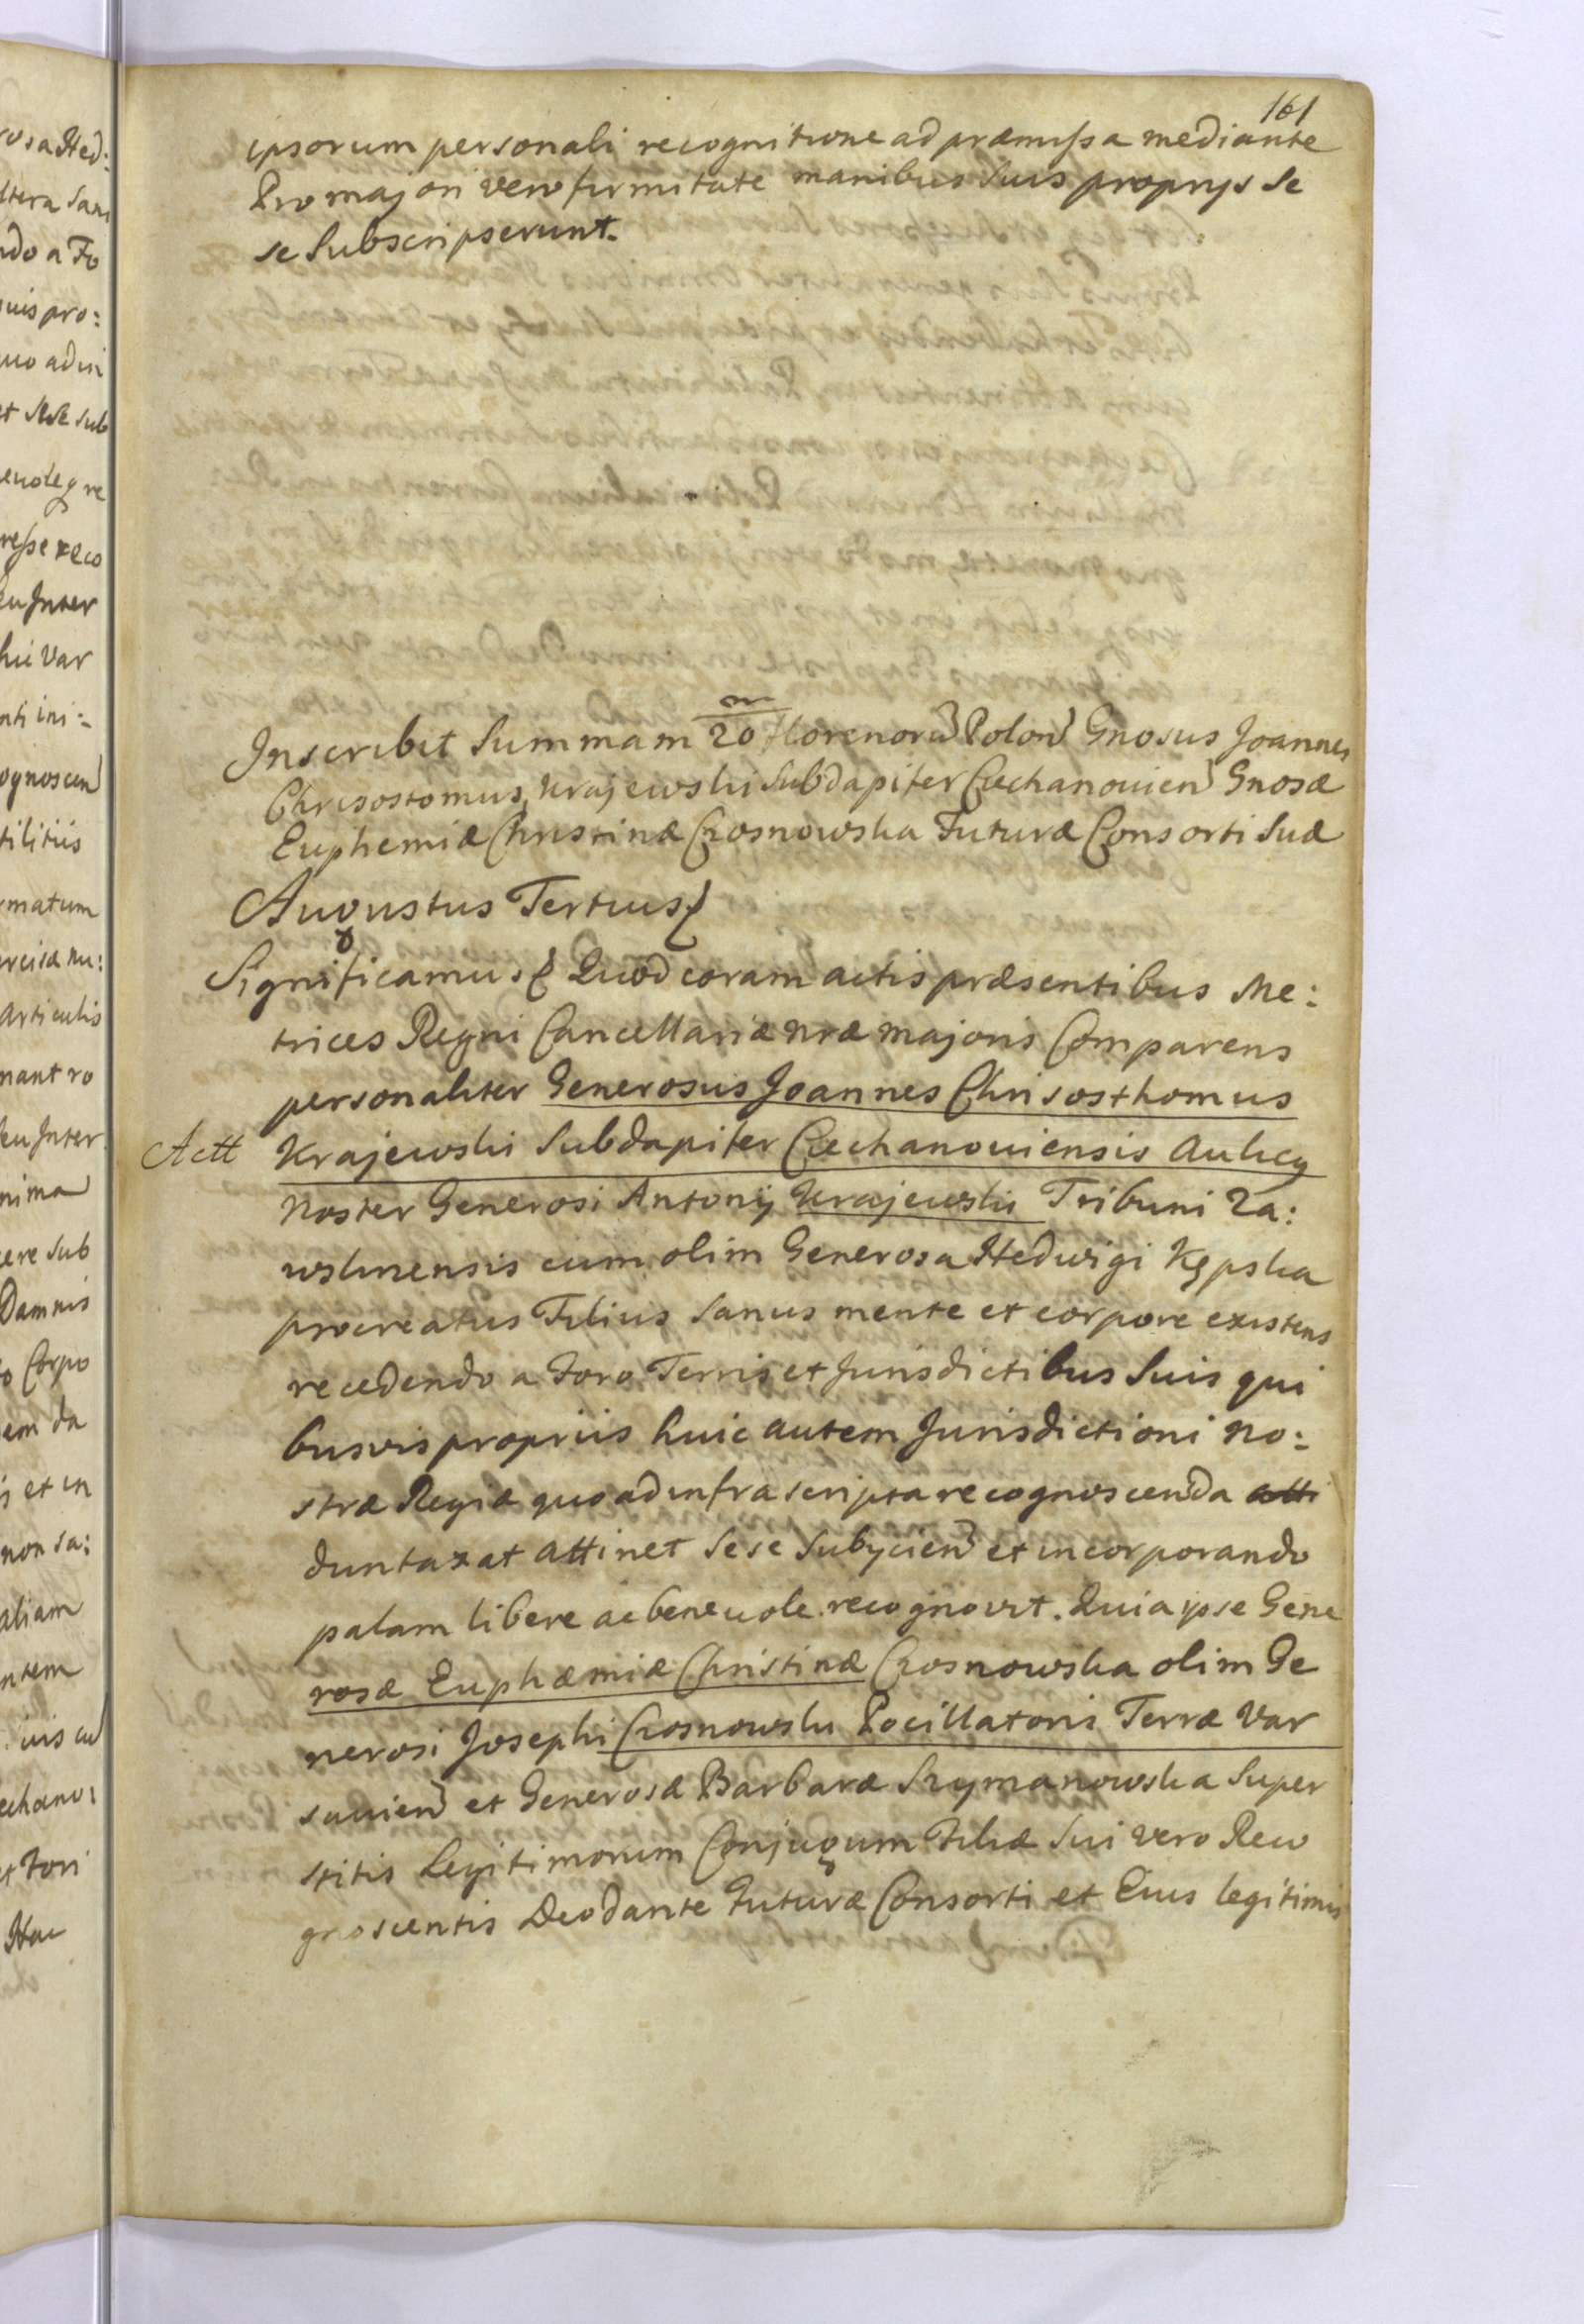 161
ipsorum personali recognitione ad præmissa mediante
Pro majori vero firmitate manibus suis proprijs se
se subscripserunt.
Inscribit Summam 20 florenorũ Polon Gnosus Joannes
Chrisostomus Krajewski Subdapifer Ciechanovien Gnosæ
Euphemiæ Christinæ Czosnowska Futuræ Consorti Suæ
Augustus Tertius
Significamus Quod coram actis præsentibus Me:
trices Regni Cancellariæ nræ majoris Comparens
personaliter Generosus Joannes Chrisosthomus
Actt Krajewski Subdapifer Ciechanoviensis Aulicy
Noster Generosi Antonij Krajewski Tribuni Za:
wskrinensis cum olim Generosa Hedwigi Kępska
procreatus Filius Sanus mente et corpore existens
recedendo a Foro Terris et Jurisdictibus Suis qui
busvis propriis huic autem Jurisdictioni No:
stræ Regiæ quo ad infra scripta recognoscenda atti
duntaxat attinet Sese Subijcien et incorporando
palam libere ac benevole recognovit. Quia ipse Gene
rosæ Euphæmiæ Christinæ Czosnowska olim Ge
nerosi Josephi Czosnowski Pocillatoris Terræ Var
savien et Generosæ Barbaræ Szymanowska Super
stitis Legitimorum Conjugum Filiæ Sui vero Reco
gnoscentis Deo dante Futuræ Consorti et Eius legitimis
rosa Hed:
ltera San
ndo a Fo
uis pro:
uo ad in
et sese sub
evole re
resse reco
eu Inter
hic Var
ati ini:
ognoscen
tilitiis
matum
rcisa nu:
Articulis
mant ro
eu Inter
nima
ere Sub
Damnis
o Corpo
em da
i et in
non sa:
aliam
ntem
echano:
et Fori